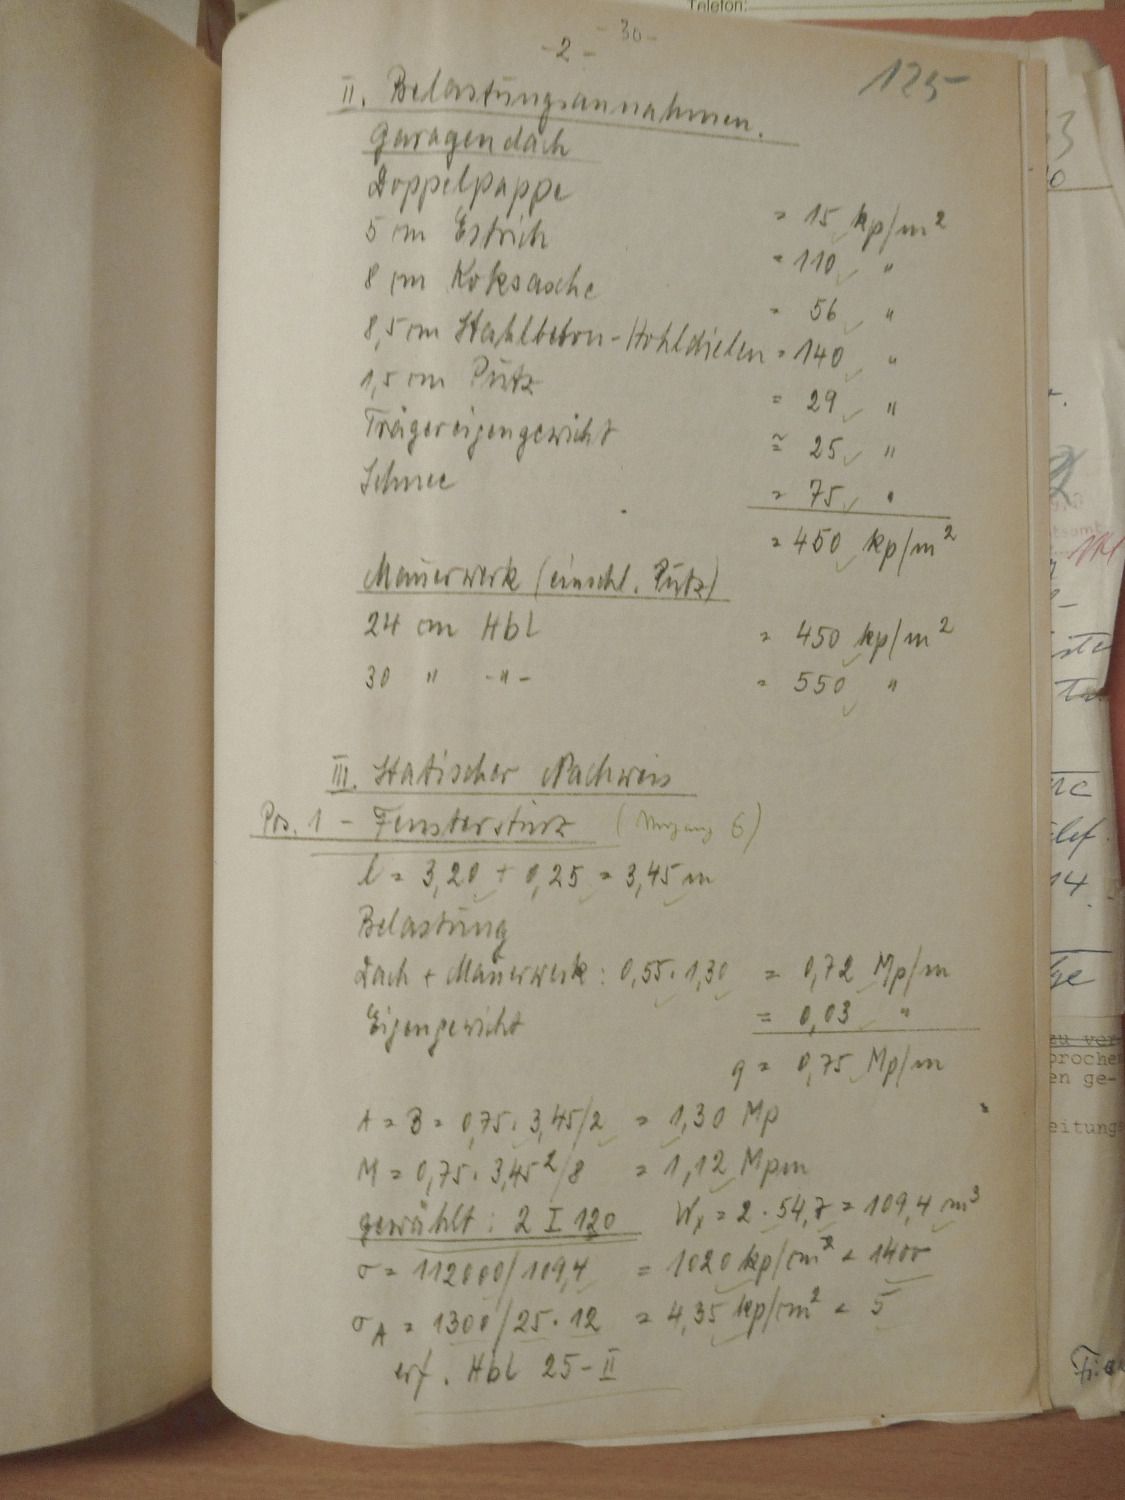 Telefon:
- 2 -
- 30 -
125
II. Belastungsannahmen.
Garagendach
Doppelpappe = 15 kp/m²
5 cm Estrich = 110 "
8 cm Koksasche = 56 "
8,5 cm Stahlbeton-Hohldielen = 140 "
1,5 cm Putz = 29 "
Trägereigengewicht ≅ 25 "
Schnee = 75 "
= 450 kp/m²
Mauerwerk (einschl. Putz)
24 cm Hbl = 450 kp/m²
30 " -"- = 550 "
III. Statischer Nachweis
Pos. 1 - Fenstersturz ( 6)
l = 3,20 + 0,25 = 3,45 m
Belastung
Dach + Mauerwerk: 0,55 · 1,30 = 0,72 Mp/m
Eigengewicht = 0,03 "
q = 0,75 Mp/m
A = B = 0,75 · 3,45/2 = 1,30 Mp
M = 0,75 · 3,45²/8 = 1,12 Mpm
gewählt: 2 I 120 Wx = 2 · 54,7 = 109,4 m³
σ = 112000/109,4 = 1020 kp/cm² < 1400
σA = 1300/25 · 12 = 4,35 kp/cm² < 5
erf. Hbl 25-II
zu ver-
prochen
en ge-
eitungs